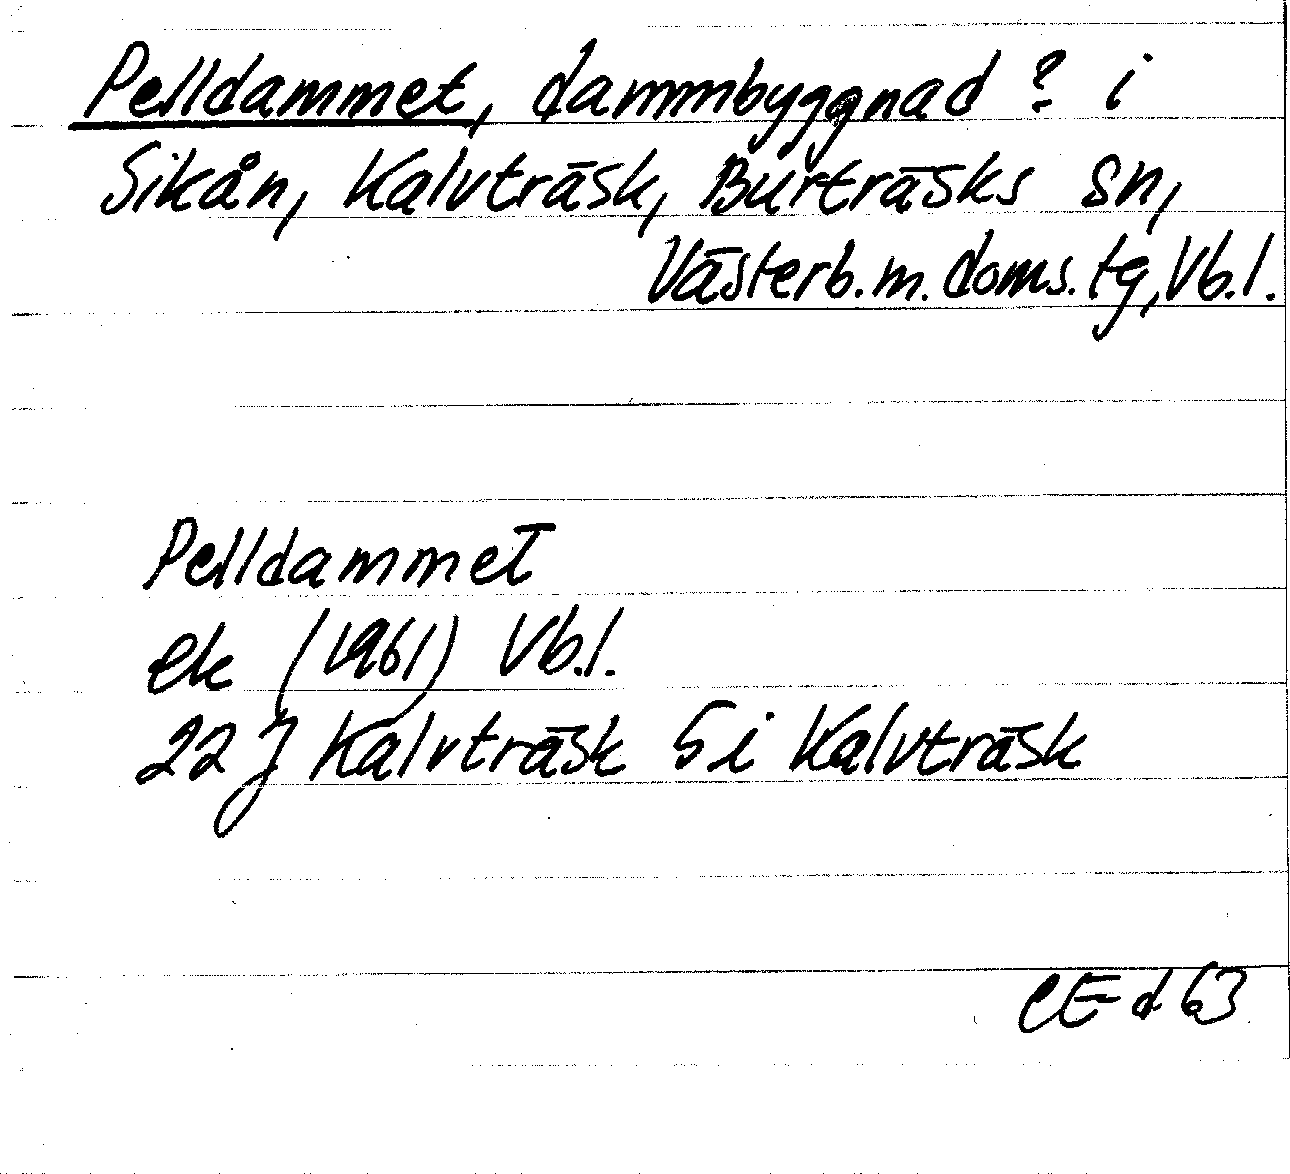 Pelldammet, dammbyggnad? i
Sikån, Kalvträsk, Burträsks sn,
Västerb.m.doms.tg, Vb.l.
Pelldammet
ek (1961) Vb.l.
22 J Kalvträsk 5 i Kalvträsk
CE d 63